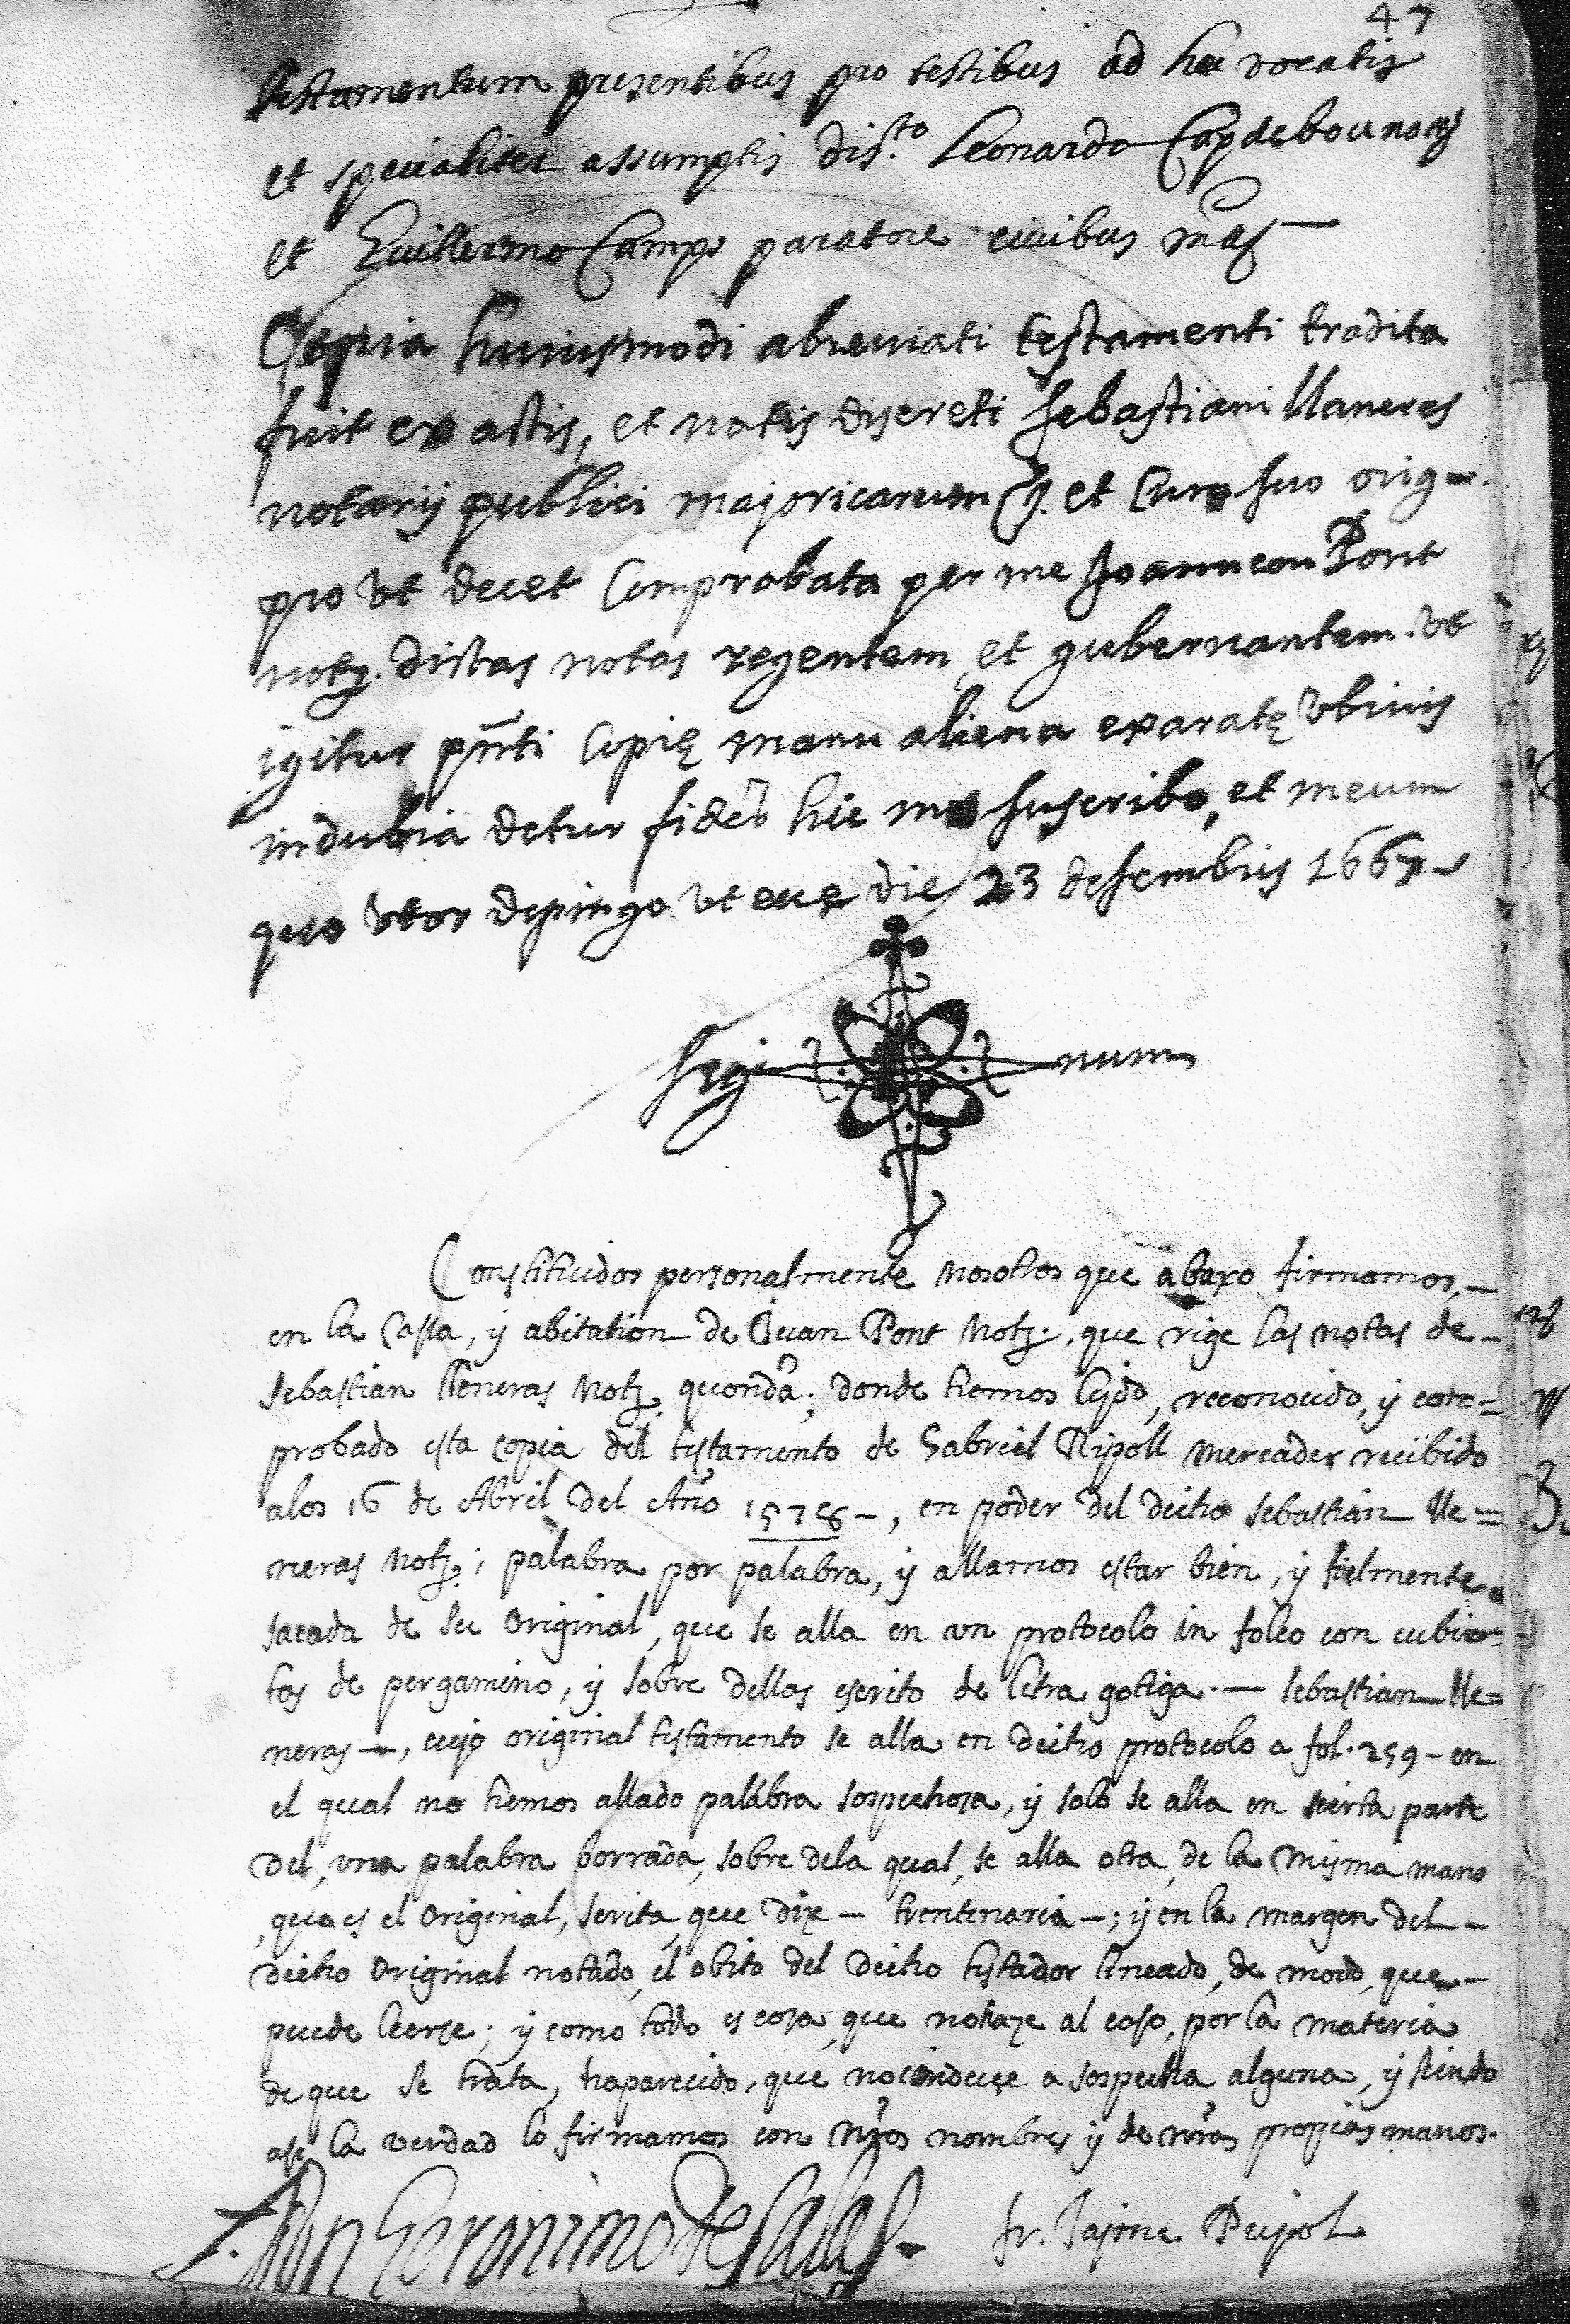 47
testamentum presentibus pro testibus ad hec vocatis
et specialiter assumptis dis.to Leonardo Capdebou noty
et Guillermo Camps paratore civibus
Copia huiusmodi abreuiati testamenti tradita
fuit ex actis, et notis discreti Sebastiani llaneres
notarij publici majoricarum q. et cum suo orig.
pro vt decet comprobata per me Joannem Pont
noty. dictas notas regentem, et gubernantem. vt
igitur pñti copię manu aliena exaratę vbiuis
indubia detur fides hic me suscribo, et meum
quo vtor depingo vt euę die 23 desembris 1667
Sig num
Constituidos personalmente nosotros que abaxo firmamos,—
en la Cassa, y abitation de Juan Pont Noty., que rige las notas de—
Sebastian lleneras Noty. quondã; donde hemos lejdo, reconocido, y com=
probado esta copia del testamento de Gabriel Ripoll Mercader recibido
alos 16 de Abril del Año 1578—, en poder del decho Sebastian lle=
neras Noty.; palabra por palabra, y allamos estar bien, y fielmente
sacada de su Original, que se alla en vn protocolo in foleo con cubier=
tas de pergamino, y sobre dellas escrito de letra gotiga.— Sebastian lle=
neras—, cujo original testamento se alla en decho protocolo a fol. 259—en
el qual no hemos allado palabra sospechosa, y solo se alla en sierta parte
del, vna palabra borrada, sobre dela qual, se alla otra, de la misma mano
que es el Original, scrita, que dize — trentenaria—; y en la margen del—
decho Original notado, el obito del decho testador lineado, de modo, que—
puede leerse; y como todo es cosa, que nohaze al caso, por la materia
de que se trata, haparecido, que no induce a sospecha alguna, y siendo
asi la verdad lo firmamos con nr̃os nombres y de nr̃as propias manos.
Don Geronimo de Salas fr. Jajme Pujol